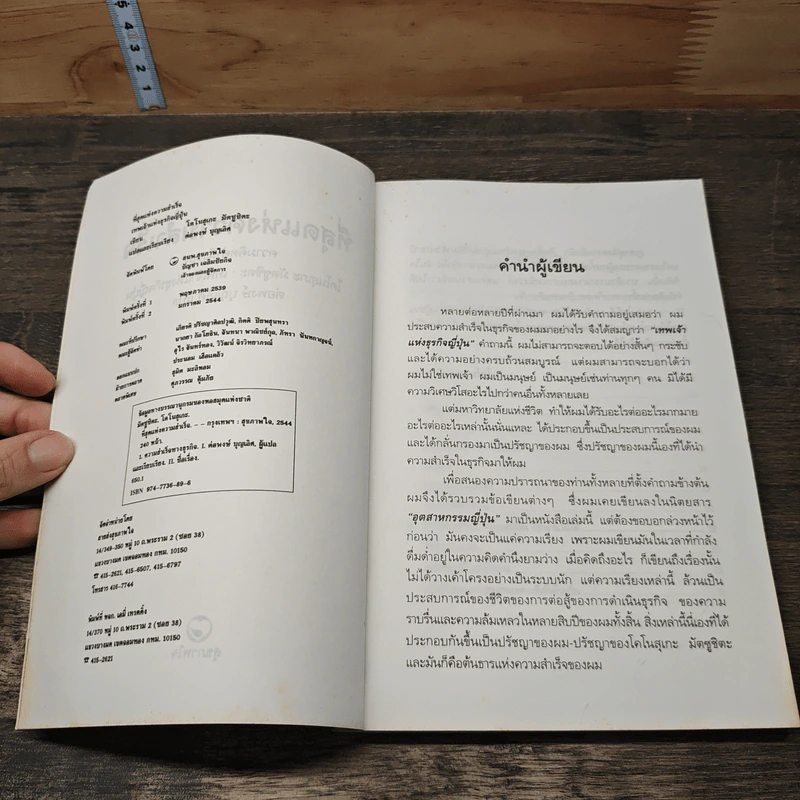 5
4
3
2
1
ที่สุดแห่งความสำเร็จ
เทพเจ้าแห่งธุรกิจญี่ปุ่น
เขียน โคโนสุเกะ มัตซูชิตะ
แปลและเรียบเรียง ต่อพงษ์ บุญเลิศ
จัดพิมพ์โดย สนพ.สุขภาพใจ
บัญชา เฉลิมชัยกิจ
เจ้าของและผู้จัดการ
พิมพ์ครั้งที่ 1 พฤษภาคม 2539
พิมพ์ครั้งที่ 2 มกราคม 2544
คณะที่ปรึกษา เกียรติ ปรัชญาศิลปวุฒิ, กิตติ ปิยพสุนทรา
คณะผู้จัดทำ
ประนอม เสือแดง
ออกแบบปก สุมิต
ฝ่ายการตลาด ศุภวรรณ จุ้มภัย
ข้อมูลทางบรรณานุกรมของหอสมุดแห่งชาติ
มัตซูชิตะ, โคโนสุเกะ.
ที่สุดแห่งความสำเร็จ. -- กรุงเทพฯ : สุขภาพใจ, 2544
240 หน้า.
1. ความสำเร็จทางธุรกิจ. I. ต่อพงษ์ บุญเลิศ, ผู้แปล
และเรียบเรียง. II. ชื่อเรื่อง.
650.1
ISBN 974-7736-89-6
จัดจำหน่ายโดย
สายส่งสุขภาพใจ
14/349-350 หมู่ 10 ถ.พระราม 2 (ซอย 38)
แขวงบางมด เขตจอมทอง กทม. 10150
☎ 415-2621, 415-6507, 415-6797
โทรสาร 416-7744
พิมพ์ที่ หจก. เอมี่ เทรดดิ้ง
14/370 หมู่ 10 ถ.พระราม 2 (ซอย 38)
แขวงบางมด เขตจอมทอง กทม. 10150
☎ 415-2621
คำนำผู้เขียน
หลายต่อหลายปีที่ผ่านมา ผมได้รับคำถามอยู่เสมอว่า ผม
ประสบความสำเร็จในธุรกิจของผมมาอย่างไร จึงได้สมญาว่า "เทพเจ้า
แห่งธุรกิจญี่ปุ่น" คำถามนี้ ผมไม่สามารถจะตอบได้อย่างสั้นๆ กระชับ
และได้ความอย่างครบถ้วนสมบูรณ์ แต่ผมสามารถจะบอกได้ว่า
ผมไม่ใช่เทพเจ้า ผมเป็นมนุษย์ เป็นมนุษย์เช่นท่านทุกๆ คน มิได้มี
ความวิเศษวิโสอะไรไปกว่าคนอื่นทั้งหลายเลย
แต่มหาวิทยาลัยแห่งชีวิต ทำให้ผมได้รับอะไรต่ออะไรมากมาย
อะไรต่ออะไรเหล่านั้นนั่นแหละ ได้ประกอบขึ้นเป็นประสบการณ์ของผม
และได้กลั่นกรองมาเป็นปรัชญาของผม ซึ่งปรัชญาของผมนี้เองที่ได้นำ
ความสำเร็จในธุรกิจมาให้ผม
เพื่อสนองความปรารถนาของท่านทั้งหลายที่ตั้งคำถามข้างต้น
ผมจึงได้รวบรวมข้อเขียนต่างๆ ซึ่งผมเคยเขียนลงในนิตยสาร
"อุตสาหกรรมญี่ปุ่น" มาเป็นหนังสือเล่มนี้ แต่ต้องขอบอกล่วงหน้าไว้
ก่อนว่า มันคงจะเป็นแค่ความเรียง เพราะผมเขียนมันในเวลาที่กำลัง
ดื่มด่ำอยู่ในความคิดคำนึงยามว่าง เมื่อคิดถึงอะไร ก็เขียนถึงเรื่องนั้น
ไม่ได้วางเค้าโครงอย่างเป็นระบบนัก แต่ความเรียงเหล่านี้ ล้วนเป็น
ประสบการณ์ของชีวิตของการต่อสู้ของการดำเนินธุรกิจ ของความ
ราบรื่นและความล้มเหลวในหลายสิบปีของผมทั้งสิ้น สิ่งเหล่านี้นี่เองที่ได้
ประกอบกันขึ้นเป็นปรัชญาของผม-ปรัชญาของโคโนสุเกะ มัตซูชิตะ
และมันก็คือต้นธารแห่งความสำเร็จของผม